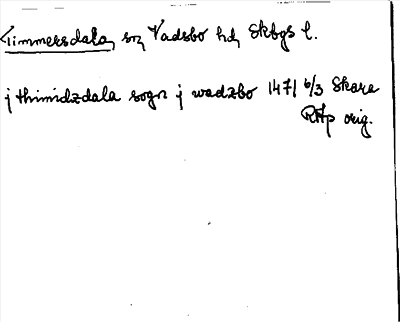 Timmersdala sn, Vadsbo hd, Skbgs l.
j thimidzdala sogn j wadzbo 1471 6/3 Skara
RAp orig.